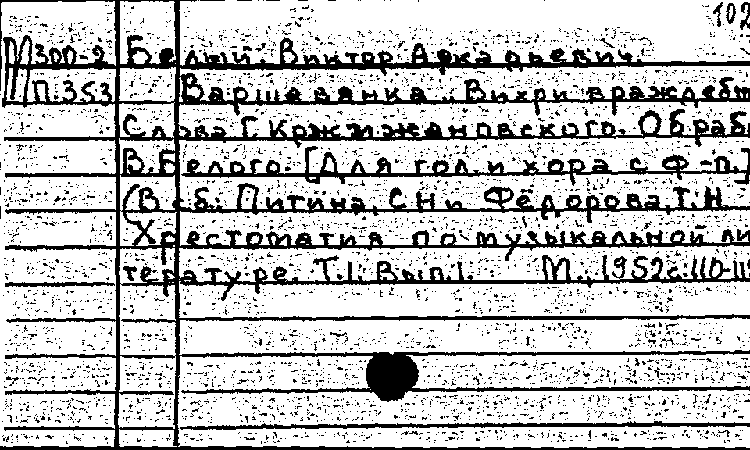 102
М300-2 Белый, Виктор Аркадьевич.
П.353 Варшавянка. Вихри враждебн
Слова Г. Кржижановского. Обраб
В.Белого. [Для гол. и хора с ф-п.]
(В сб.: Питина, С.Н и Фёдорова, Т.Н.
Хрестоматия по музыкальной ли
тературе. Т.1. Вып.1. М., 1952 с.110-11